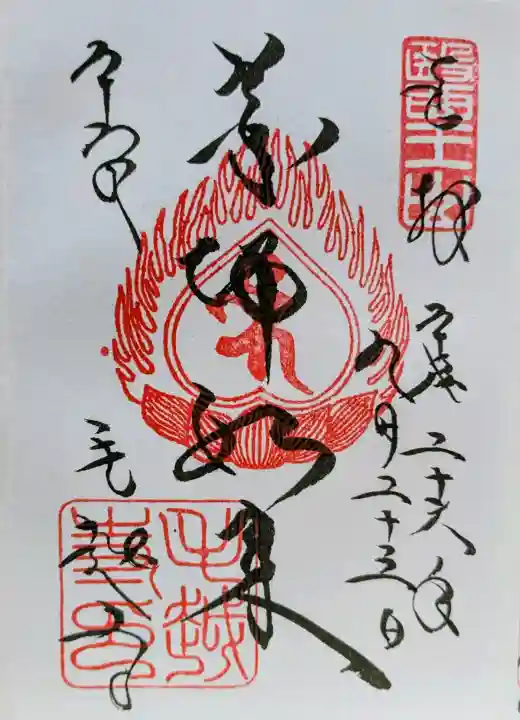 醫王山
奉拝
平成二十六年
九月二十三日
薬師如来
平泉
毛越寺